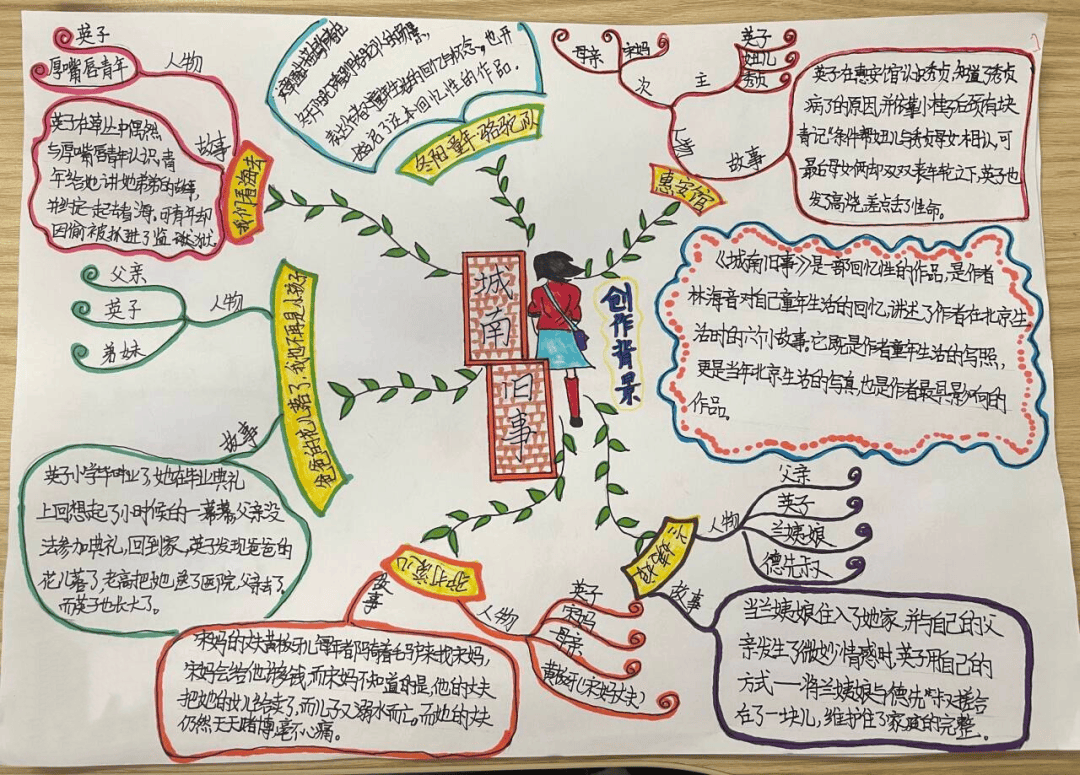 城南
旧事
创作背景
《城南旧事》是一部回忆性的作品,是作者
林海音对自己童年生活的回忆,讲述了作者在北京生
活时的六个小故事。它既是作者童年生活的写照,
更是当年北京生活的写真,也是作者最具影响的
作品。
冬阳·童年·骆驼队
表达作者对童年生活的回忆与怀念。也开
启了这本回忆性的作品。
惠安馆
人物
主
英子
妞儿
秀贞
次
母亲
宋妈
故事
英子在惠安馆认识秀贞,知道了秀贞
病了的原因,并依靠小桂子后颈有块
青记"条件帮妞儿与秀贞母女相认,可
最后母女俩却双双丧车轮之下,英子也
发了高烧,差点丢了性命。
我们看海去
人物
英子
厚嘴唇青年
故事
英子在草丛中偶然
与厚嘴唇青年认识,青
年给她讲她弟弟的故事,
并约定一起去看海,可青年却
因偷被抓进了监狱。
爸爸的花儿落了,我也不再是小孩子
人物
父亲
英子
弟妹
故事
英子小学毕业了,她在毕业典礼
上回想起了小时候的一幕幕,父亲没
法参加典礼,回到家,英子发现爸爸的
花儿落了,老高把她送了医院,父亲去了。
而英子也长大了。
驴打滚儿
人物
英子
宋妈
母亲
黄板牙(宋妈丈夫)
故事
宋妈的丈夫黄板牙儿每年都骑着毛驴来找宋妈,
宋妈会给他许多钱,而宋妈不知道的是,他的丈夫
把她的女儿给卖了,而儿子又溺水而亡。而她的丈夫
仍然天天赌博毫不心痛。
兰姨娘
人物
父亲
英子
兰姨娘
德先叔
故事
当兰姨娘住入了她家,并与自己的父
亲发生了微妙情感时,英子用自己的
方式——将兰姨娘与德先叔又撮合
在了一块儿,维护住了家庭的完整。